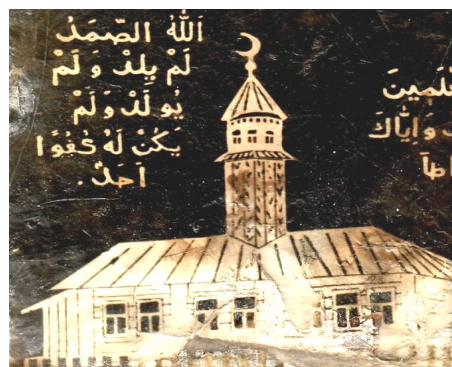 اَللّٰهُ الصَّمَدُ
لَمْ يَلِدْ وَلَمْ
يُولَدْ وَلَمْ
يَكُنْ لَهُ كُفُوًا
اَحَدٌ.
وَاِيَّاكَ